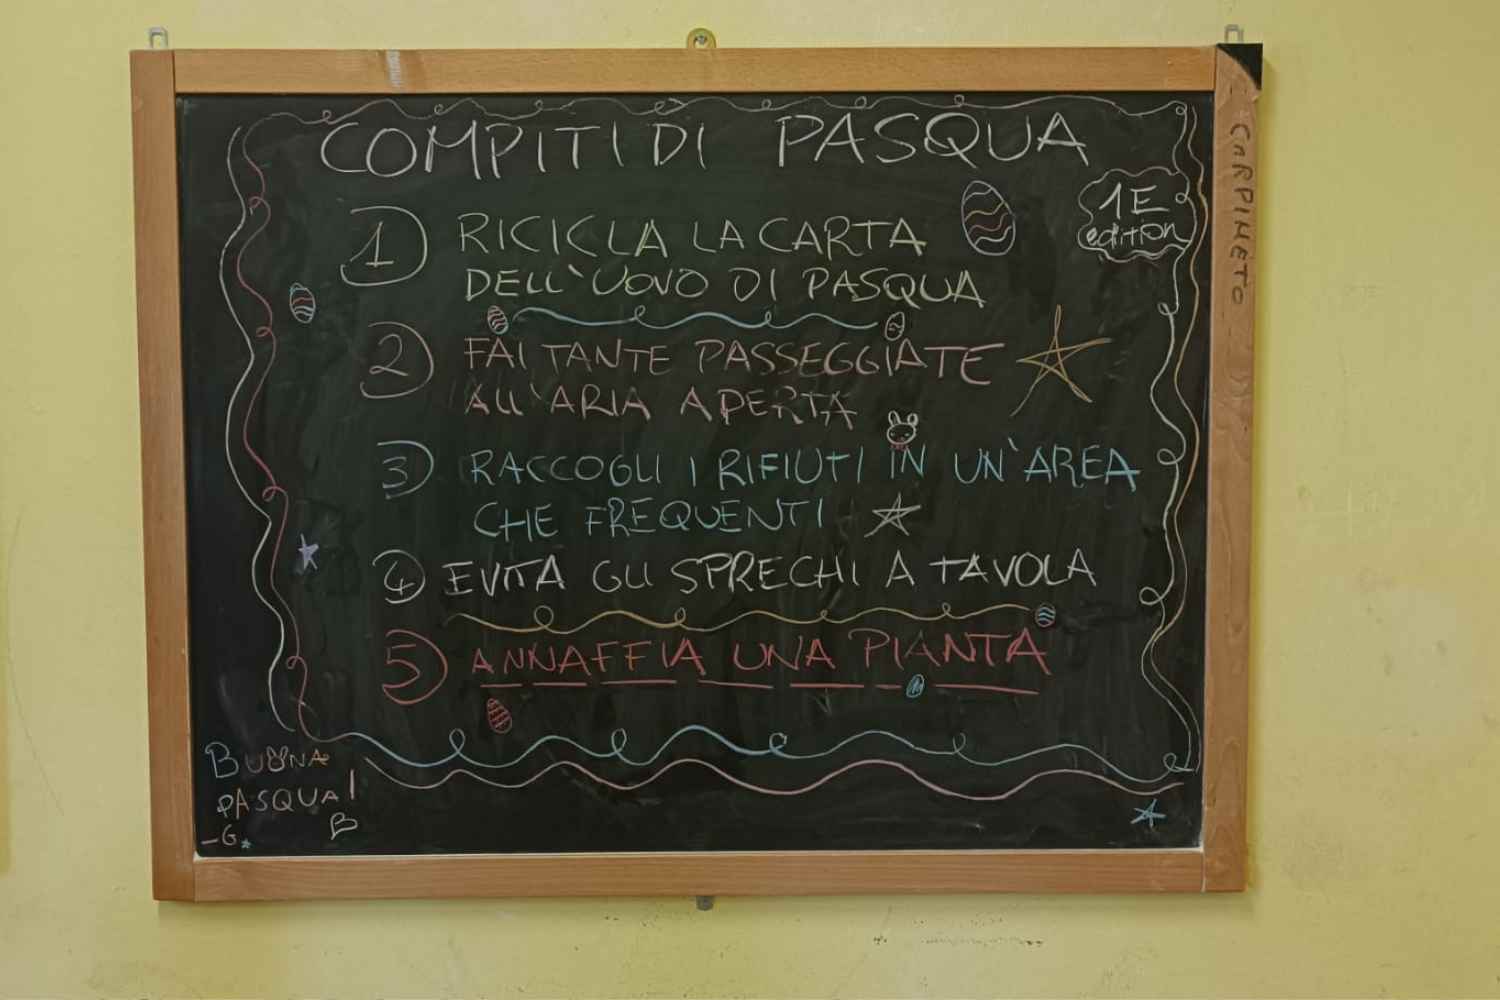 COMPITI DI PASQUA
1E
edition
1) RICICLA LA CARTA
DELL'UOVO DI PASQUA
2) FAI TANTE PASSEGGIATE
ALL'ARIA APERTA
3) RACCOGLI I RIFIUTI IN UN'AREA
CHE FREQUENTI
4) EVITA GLI SPRECHI A TAVOLA
5) ANNAFFIA UNA PIANTA
BUONA
PASQUA!
-G. B
CARPINETO